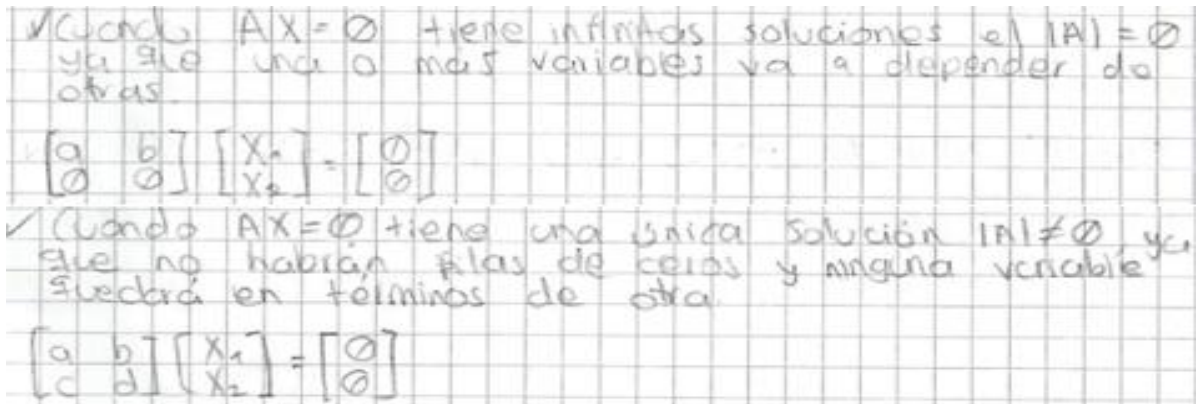 ✓Cuando AX=∅ tiene infinitas soluciones el |A| = ∅
ya que una o mas variables va a depender de
otras.
[a b] [X₁] = [∅]
[∅ ∅] [X₂] [∅]
✓ Cuando AX=∅ tiene una única solución |A|≠∅, ya
que no habrán filas de ceros y ninguna variable
quedará en términos de otra.
[a b] [X₁] = [∅]
[c d] [X₂] [∅]